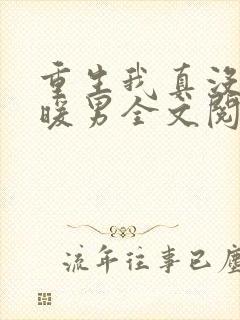 重生我真没
暖男全文阅
流年往事已尘